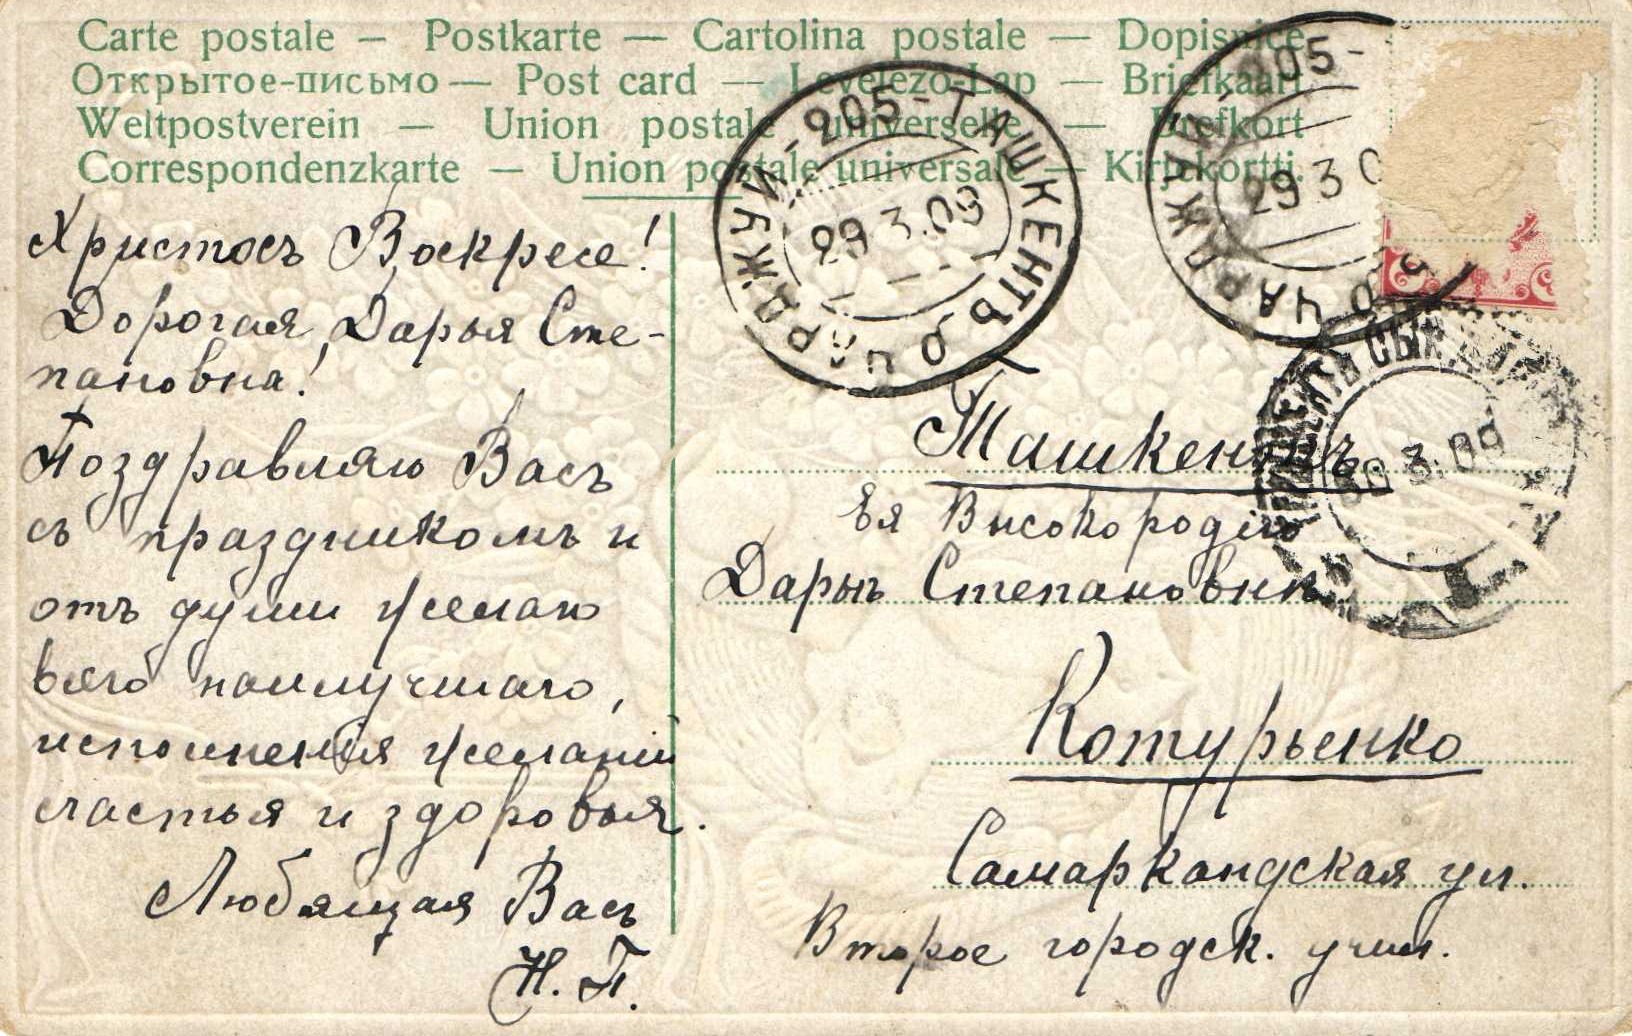 Carte postale — Postkarte — Cartolina postale — Dopisnice
Открытое-письмо — Post card — Levelező-Lap — Briefkaart
Weltpostverein — Union postale universelle — Brefkort
Correspondenzkarte — Union postale universale — Kirjekortti.
ЧАРДЖУЙ - 205 - ТАШКЕНТЪ
29 3.09
ЧАРДЖУЙ - 205 -
29 3 0
ТАШКЕНТЪ СЫР
30 3.09
Христосъ Воскресе!
Дорогая, Дарья Сте-
пановна!
Поздравляю Васъ
съ праздникомъ и
отъ души желаю
всего наилучшаго,
исполненія желаній
счастья и здоровья.
Любящая Васъ
Н. П.
Ташкентъ
Ея Высокородію
Дарьѣ Степановнѣ
Котурьенко
Самаркандская ул.
Второе городск. учил.